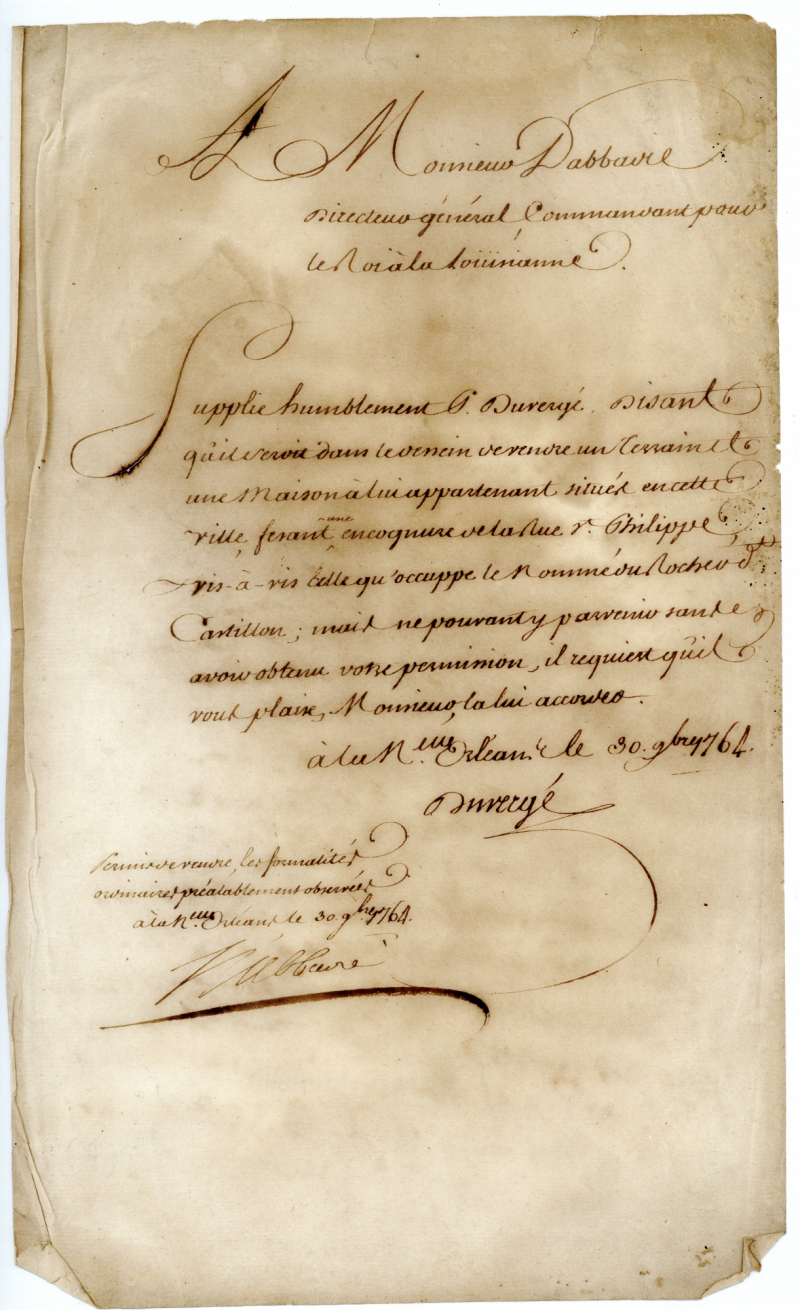 A Monsieur Dabbadie
Directeur général, Commandant pour
le Roi à la Loüisianne.
Supplie humblement P. Duvergé, Disant
qu'il seroit dans le dessein de vendre un Terrain et
une Maison à lui appartenant situés en cette
ville, fesant une encognure de la Rue St. Philippe,
vis-à-vis celle qu'occuppe le Nommé du Rocher dt.
Castillon; mais ne pouvant y parvenir sans
avoir obtenu votre permission, il requiert qu'il
vous plaise, Monsieur, la lui accorder.
à la Nelle. Orléans le 30. 9bre 1764.
Duvergé
Permis de vendre, les formalités
ordinaires préalablement observées
à la Nelle. Orleans le 30. 9bre 1764.
Dabbadie